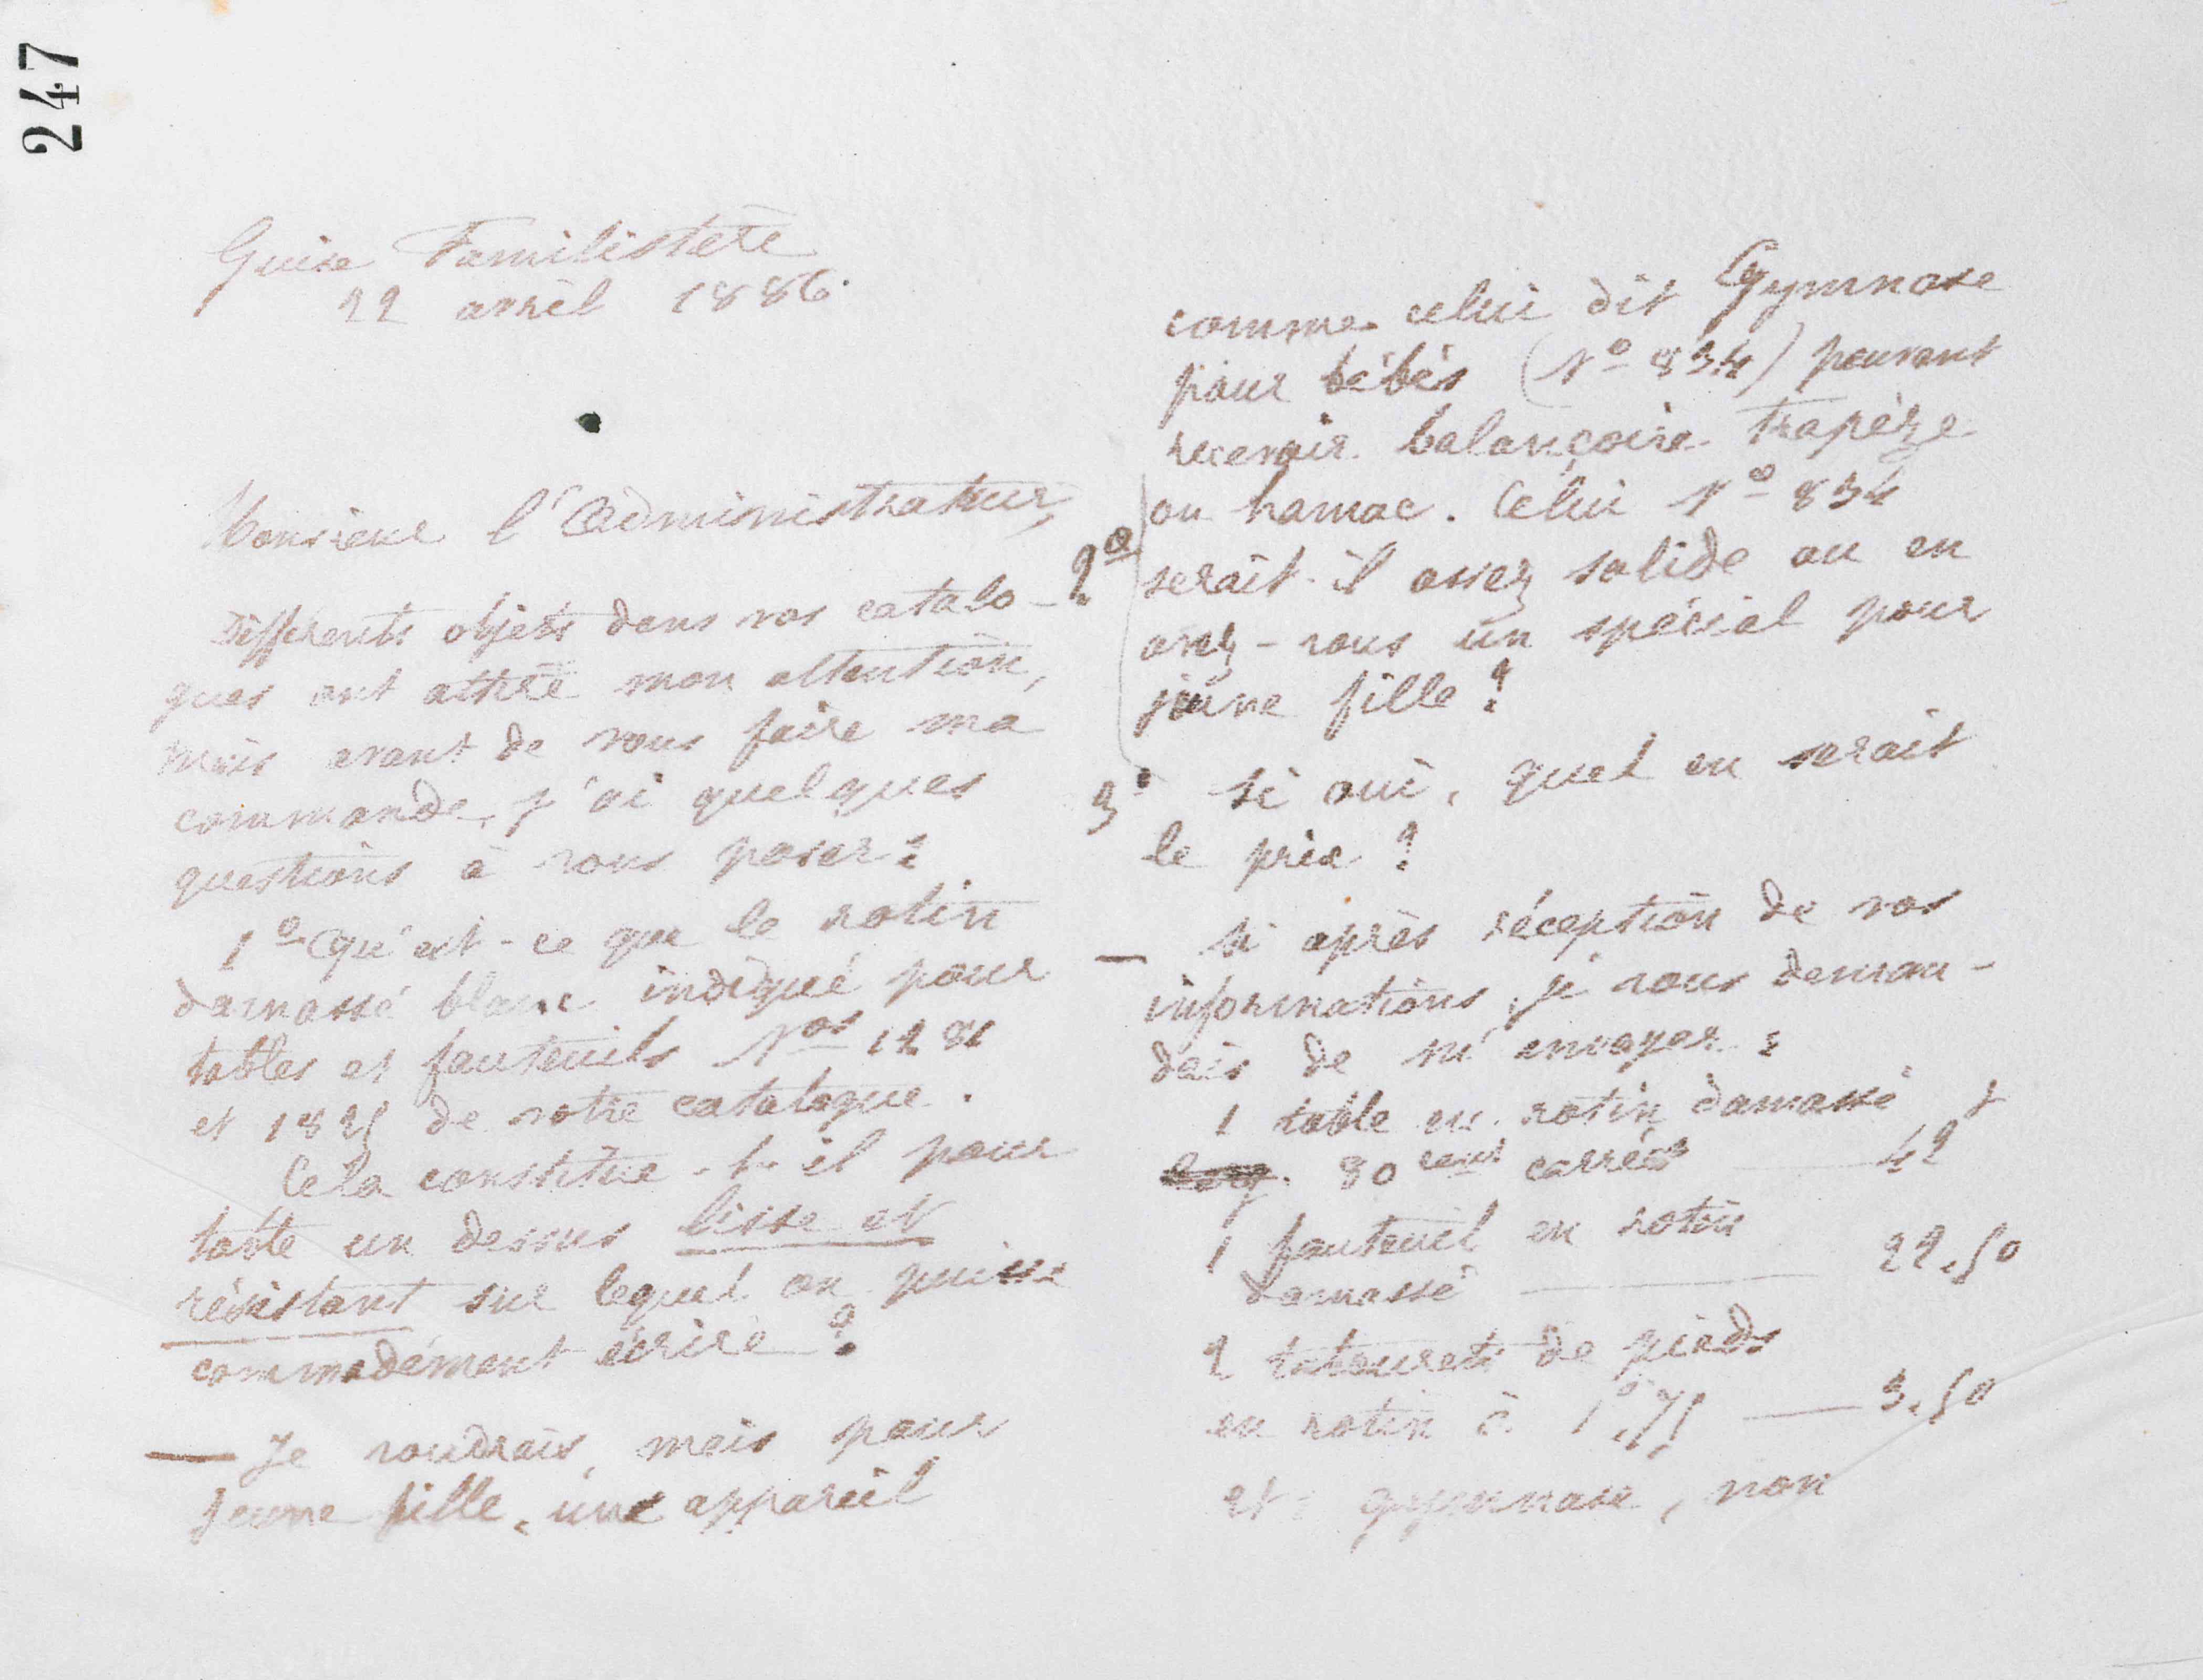 247
Guise Familistère
22 avril 1886.
Monsieur l'Administrateur,
Différents objets dans vos catalo-
gues ont attiré mon attention,
mais avant de vous faire ma
commande, j'ai quelques
questions à vous poser :
1º Qu'est-ce que le rotin
damassé blanc indiqué pour
tables et fauteuils Nos
et 1825 de votre catalogue.
Cela constitue-t-il pour
table un dessus lisse et
résistant sur lequel on puisse
commodément écrire ?
— Je voudrais, mais pour
jeune fille, une appareil
comme celui dit Gymnase
pour bébés (Nº 834) pouvant
recevoir balançoire trapèze
ou hamac. Celui Nº 834
2º serait-il assez solide ou en
avez-vous un spécial pour
jeune fille ?
3º Si oui, quel en serait
le prix ?
— Si après réception de vos
informations, je vous deman-
dais de m'envoyer :
1 table en rotin damassé
80 cent carrés — 42 f
1 fauteuil en rotin
damassé — 22,50
2 tabourets de pieds
en rotin à 1f,75 — 3,50
et gymnase, non